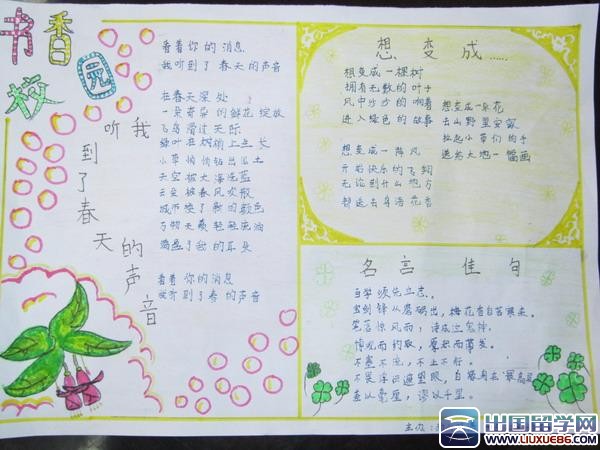 书香校园
我听到了春天的声音
看着你的消息
我听到了春天的声音
在春天深处
一朵奇异的鲜花绽放
飞鸟滑过天际
绿叶在树梢上生长
小草悄悄钻出泥土
天空被大海洗蓝
云朵被春风吹散
城市换了新的颜色
万物
看着你的消息
我听到了春的声音
想变成……
想变成一棵树
拥有无数的叶子
风中沙沙的响着
进入绿色的故事
想变成一阵风
开始快乐的飞翔
无论到什么地方
都送去鸟语花香
想变成一朵花
去山野里安家
拉起小草们的手
送给大地一幅画
名言佳句
当学须先立志。
宝剑锋从磨砺出，梅花香自苦寒来。
笔落惊风雨，诗成泣鬼神。
博观而约取，厚积而薄发。
不塞不流，不止不行。
不畏浮云遮望眼，自缘身在最高层
差以毫厘，谬以千里。
主办：
出国留学网
www.liuxue86.com